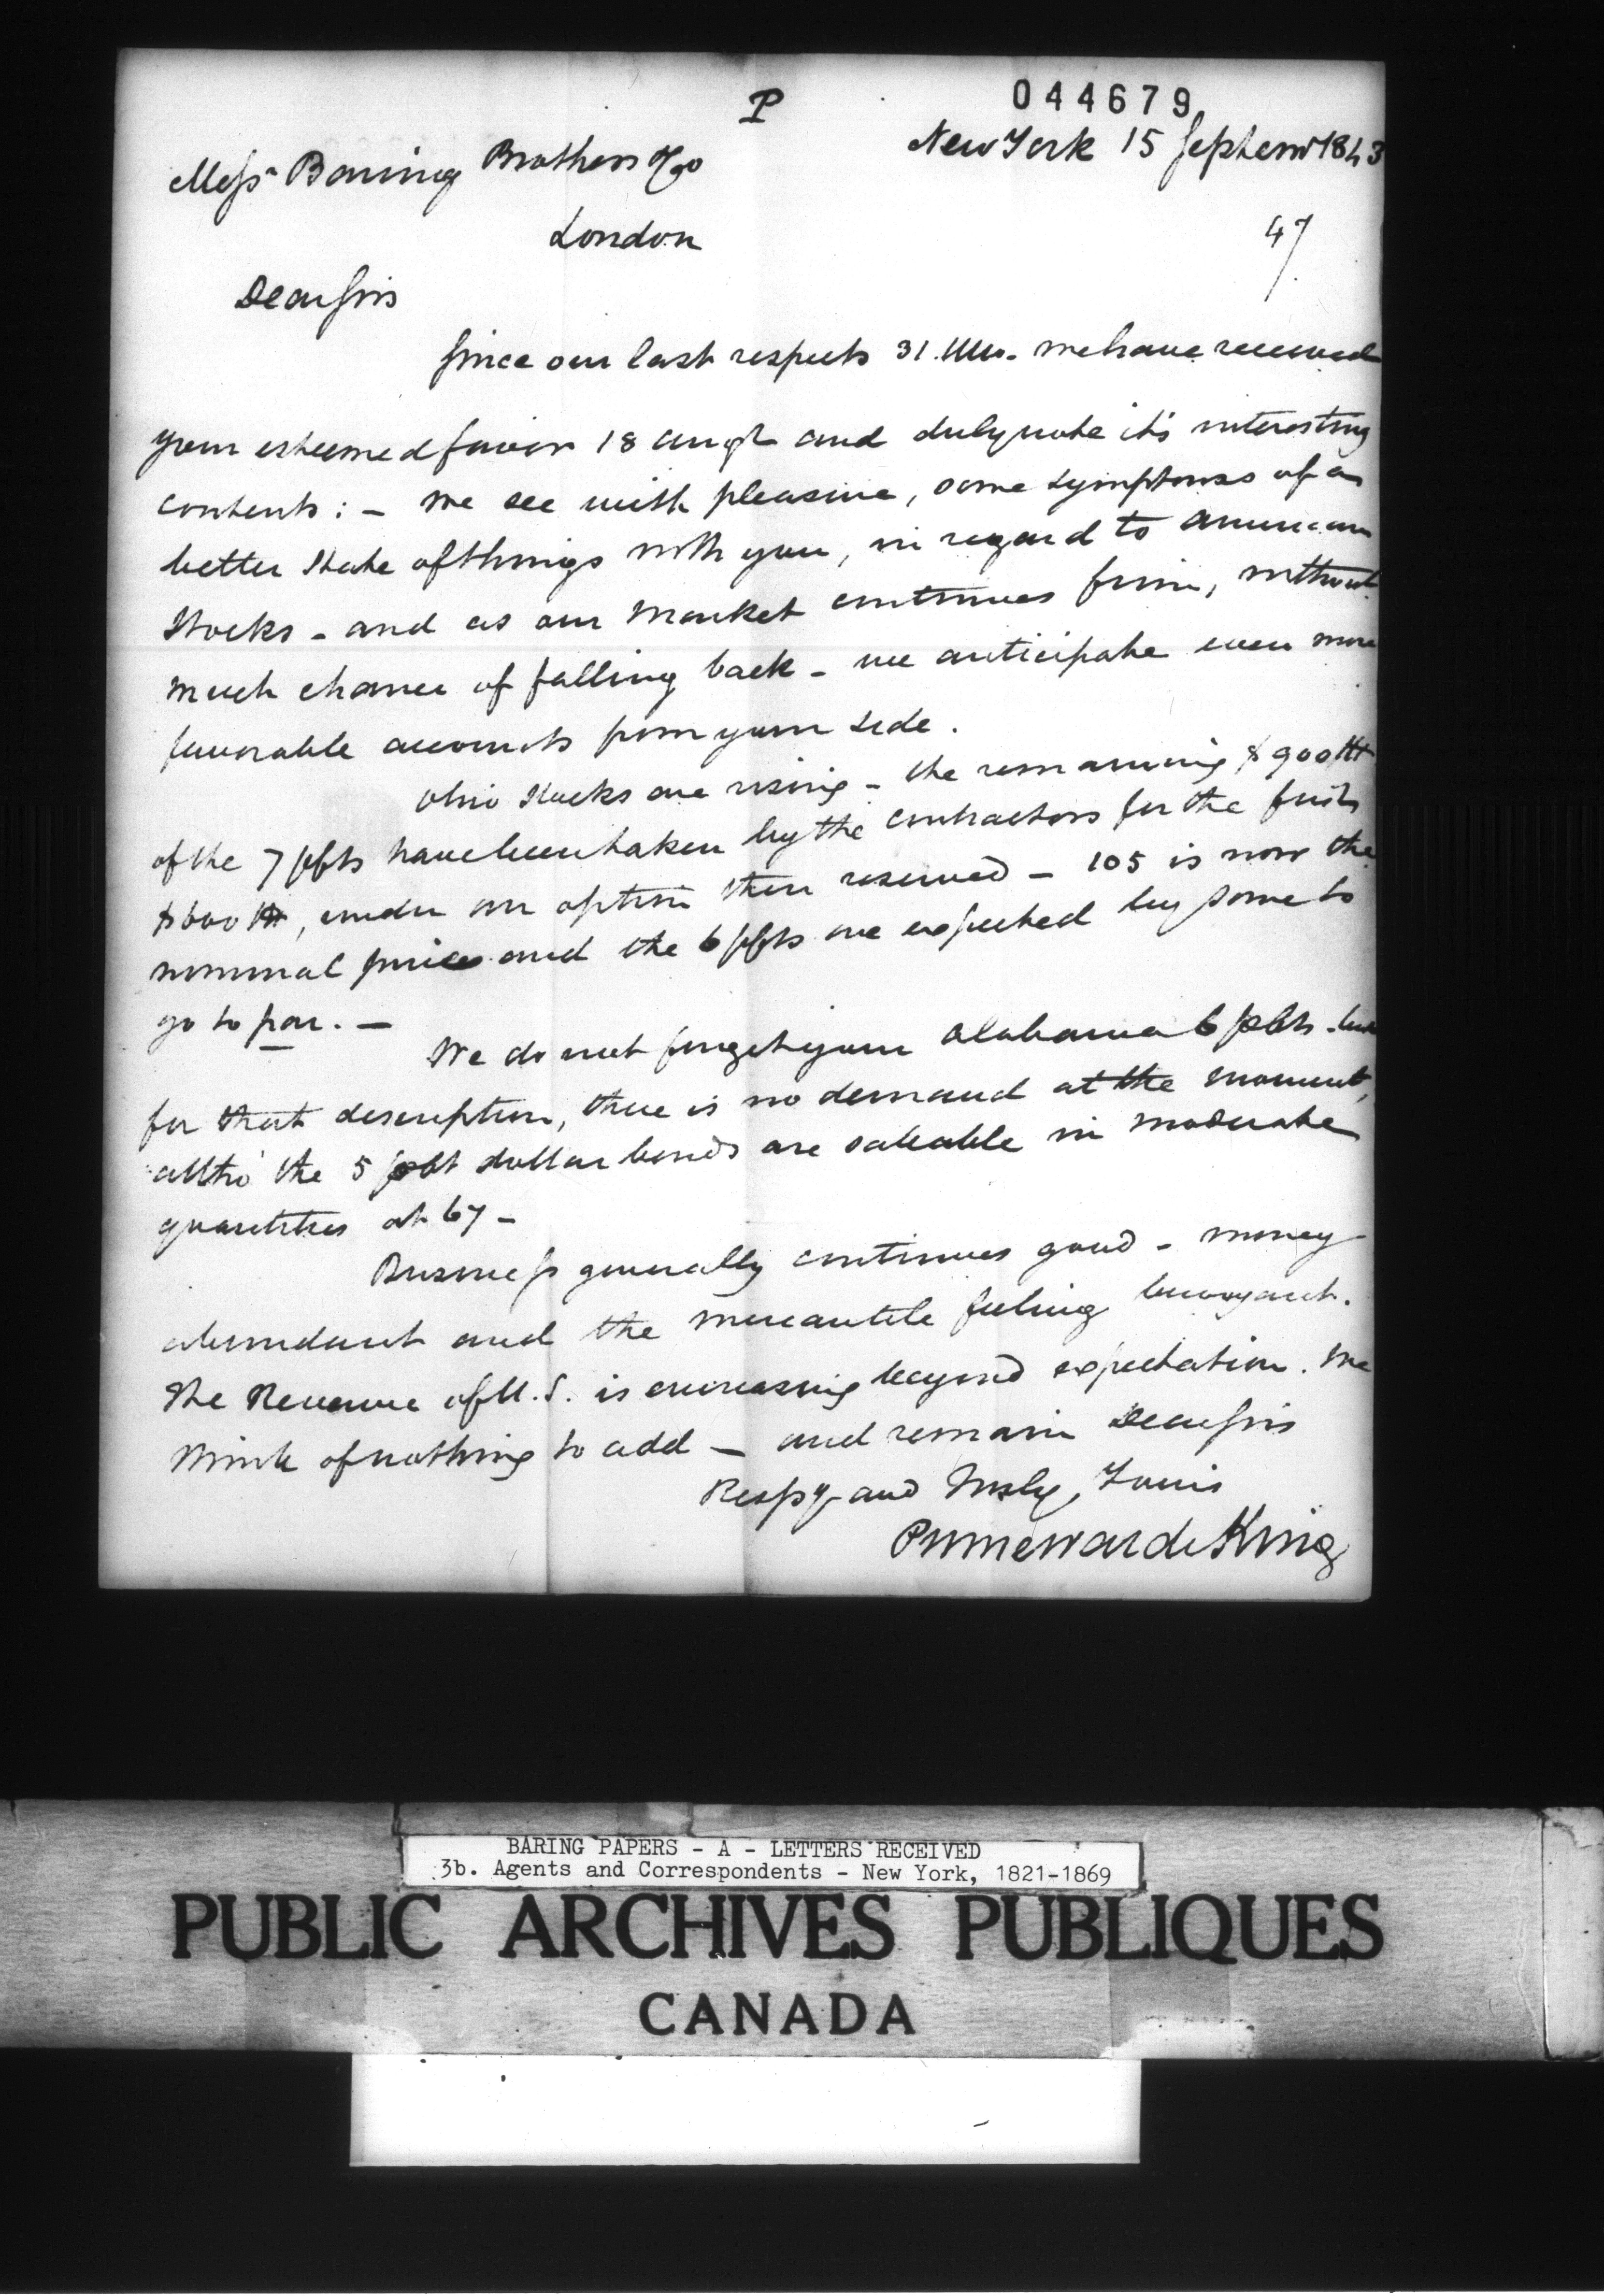 P
044679
New York 15 Septemr 1843
Messrs Baring Brothers & Co
London
47
Dear Sirs
Since our last respects 31. Ulto. we have received
your esteemed favor 18 augt and duly note it's interesting
contents: - We see with pleasure, some symptoms of a
better state of things with you, in regard to american
stocks - and as our market continues firm, without
much chance of falling back - we anticipate even more
favorable accounts from your side.
Ohio stocks are rising - the remaining $900
of the 7 pCts have been taken by the contractors for the first
$600, under an option then reserved - 105 is now the
nominal price and the 6 pCts are expected by some to
go to par. -
We do not forget your Alabama 6 pCts - but
for that description, there is no demand at the moment,
altho' the 5 pCt dollar bonds are saleable in moderate
quantities at 67 -
Business generally continues good - money
abundant and the mercantile feeling buoyant.
The Revenue of U.S. is encreasing beyond expectation. We
think of nothing to add - and remain Dear Sirs
Respy and Truly, Yours
Prime Ward & King
BARING PAPERS - A - LETTERS RECEIVED
3b. Agents and Correspondents - New York, 1821-1869
PUBLIC ARCHIVES PUBLIQUES
CANADA